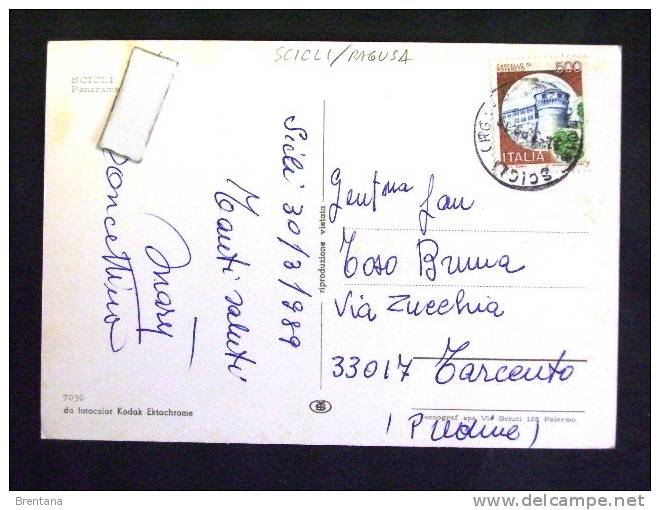 SCICLI/RAGUSA
SCICLI
Panorama
Scicli 30/3/989
Tanti saluti
Mary
Concettina
7030
da fotocolor Kodak Ektachrome
riproduzione vietata
CASTELLO DI
ROVERETO
500
ITALIA
SCICLI (RG)
Gent.ma Fam
Toso Bruna
Via Zucchia
33017 Tarcento
(P Udine)
Tecnograf spa Via Scluti 128 Palermo
Brentana
delcampe.net